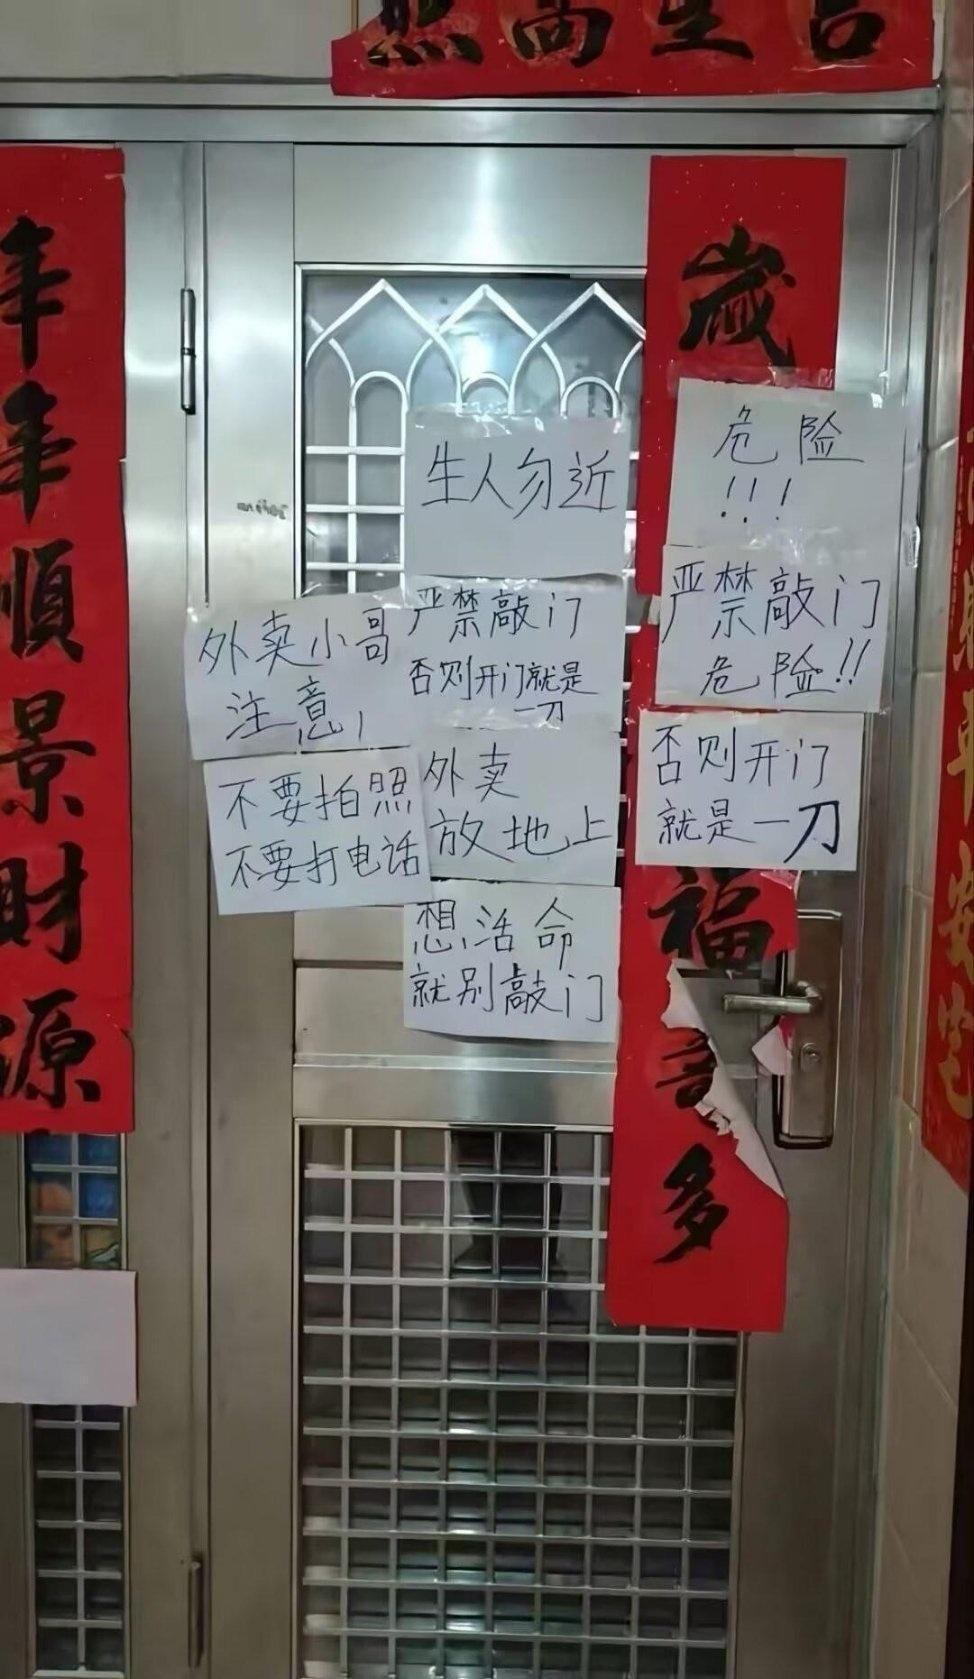 吉星高照
年年順景財源
歲
福
多
生人勿近
严禁敲门
否则开门就是
一刀
外卖
放地上
想活命
就别敲门
外卖小哥
注意!
不要拍照
不要打电话
危险
!!!
严禁敲门
危险!!
否则开门
就是一刀